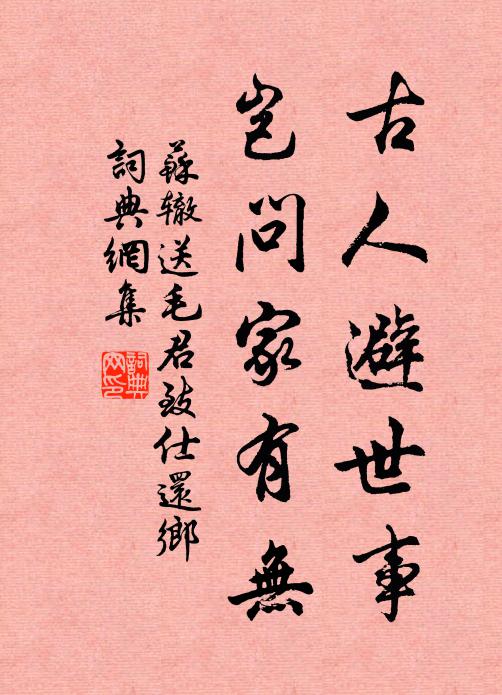 古人避世事
豈問家有無
蘇辙送毛君致仕還鄉
詞典網集
詞典網印